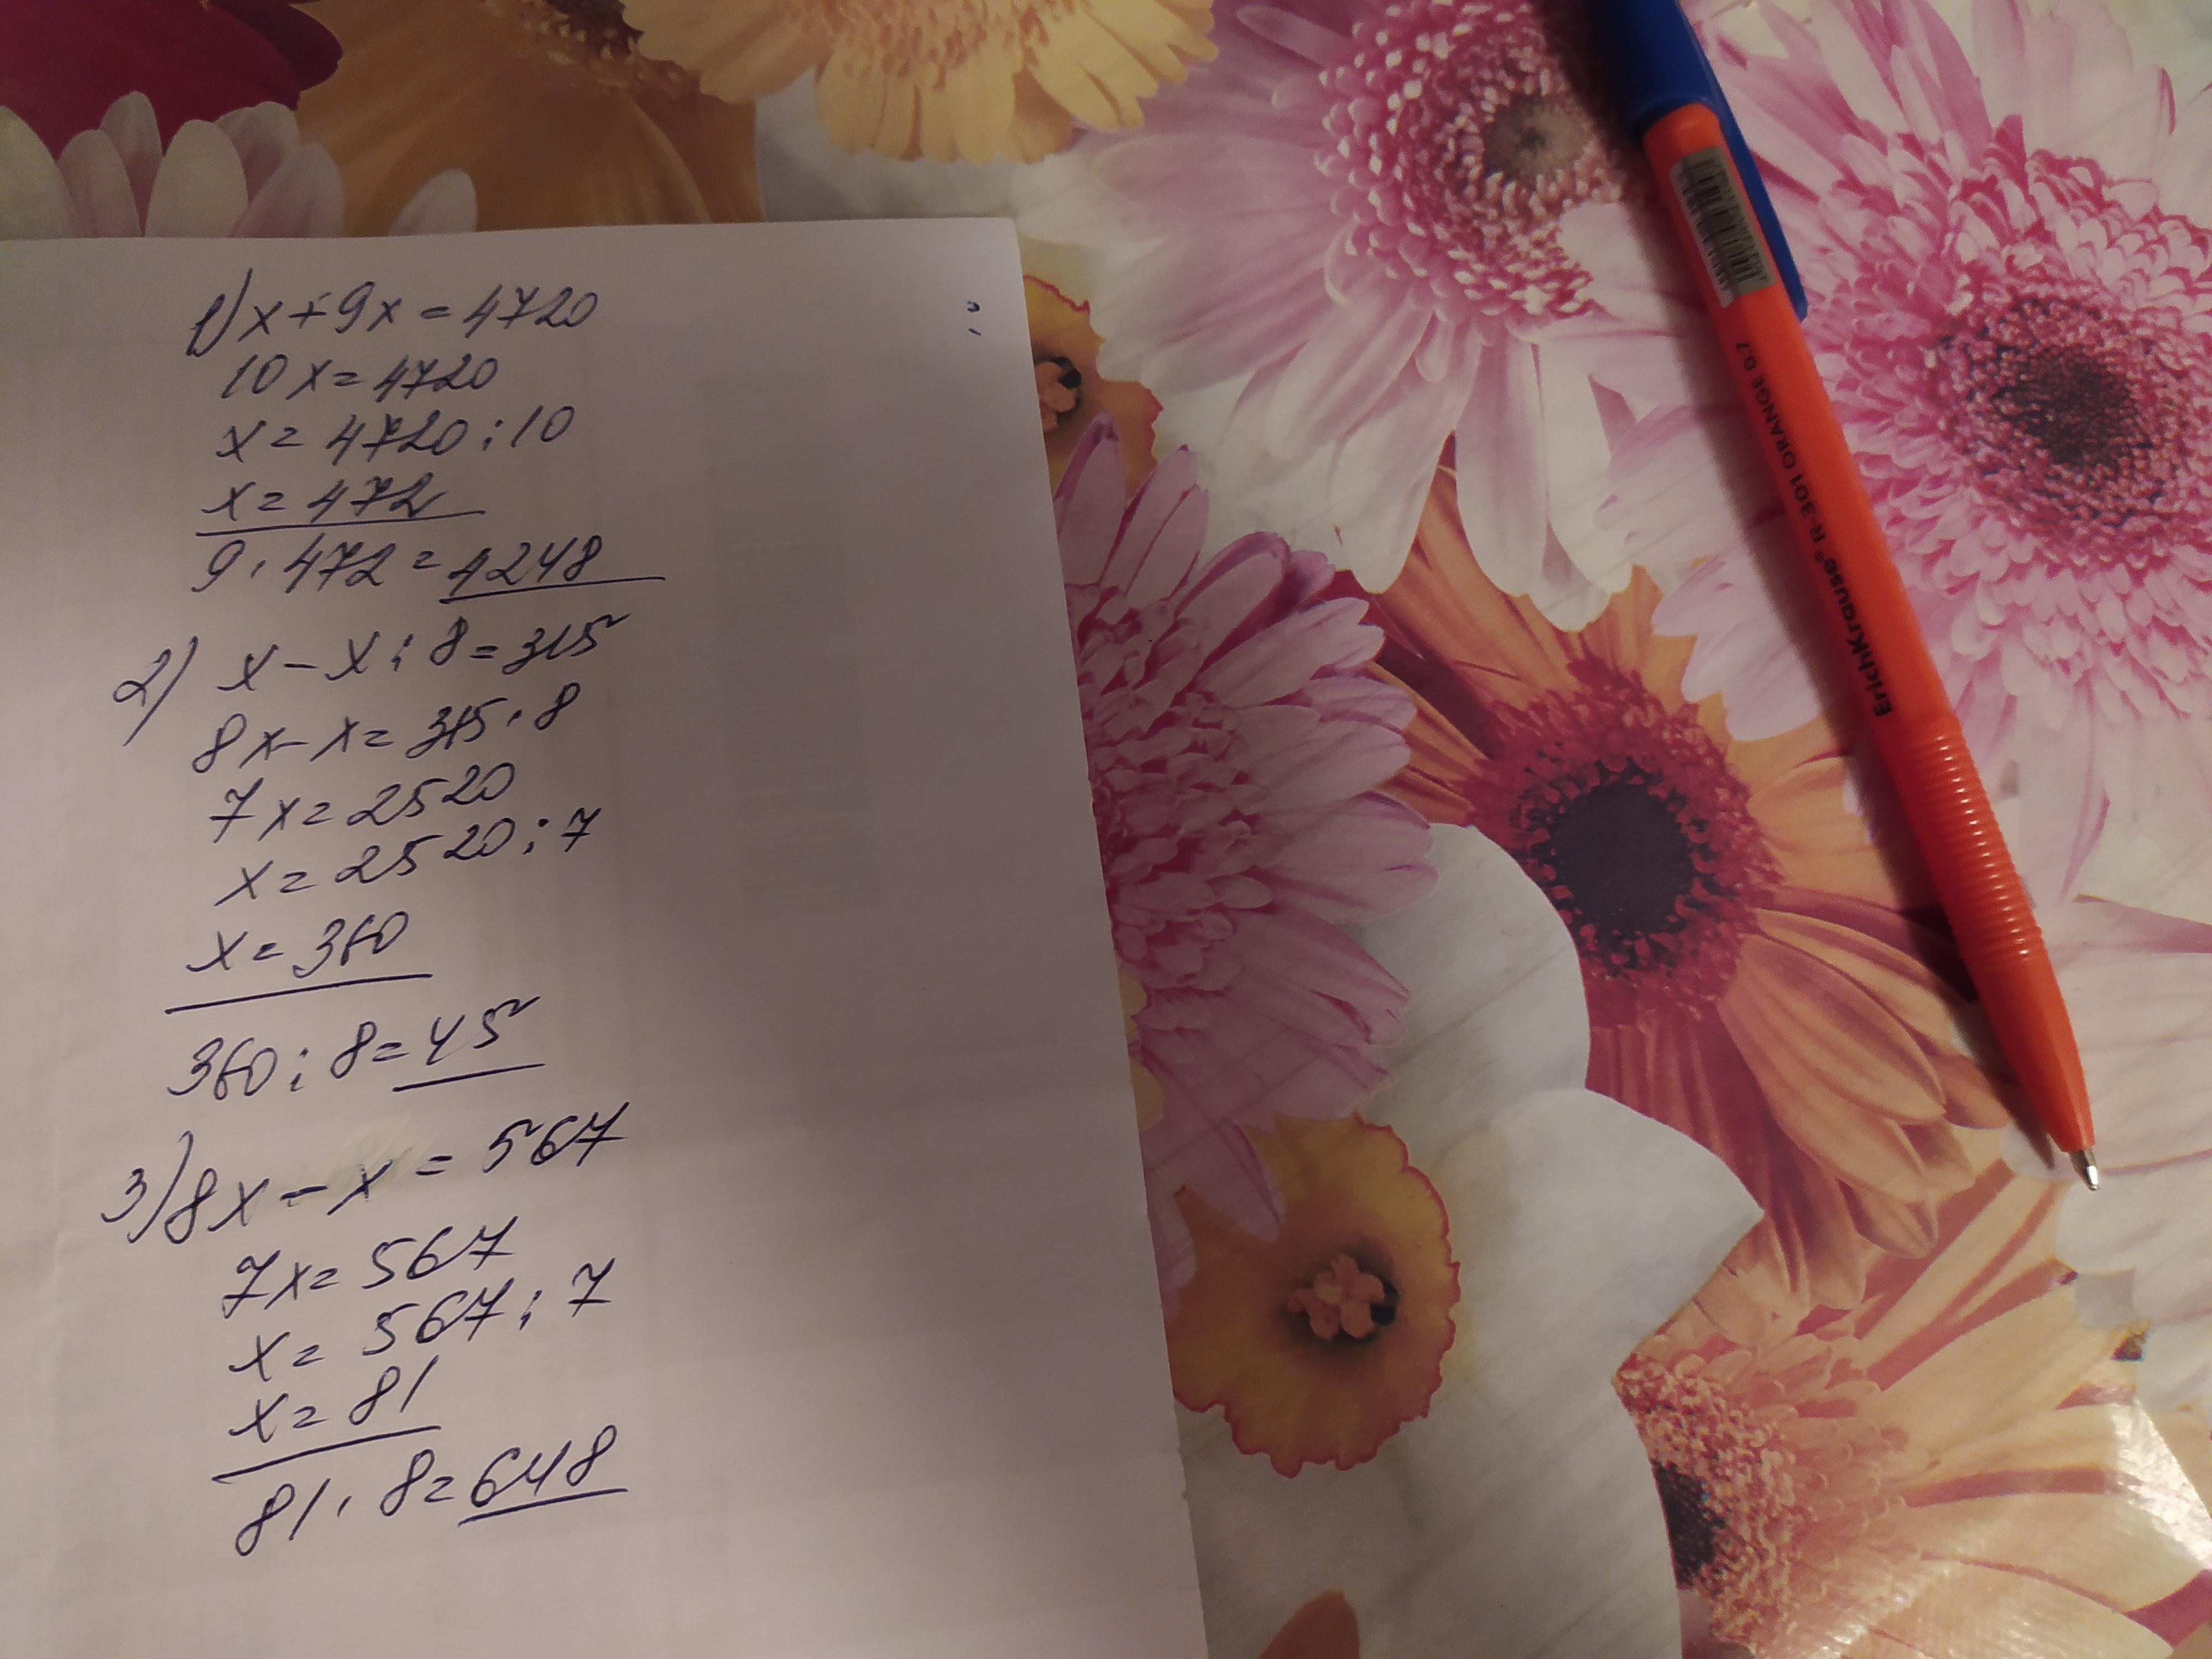 1) x+9x=4720
10x=4720
x=4720:10
x=472
9·472=4248
2) x-x:8=315
8x-x=315·8
7x=2520
x=2520:7
x=360
360:8=45
3) 8x-x=567
7x=567
x=567:7
x=81
81·8=648
ErichKrause® R-301 ORANGE 0.7